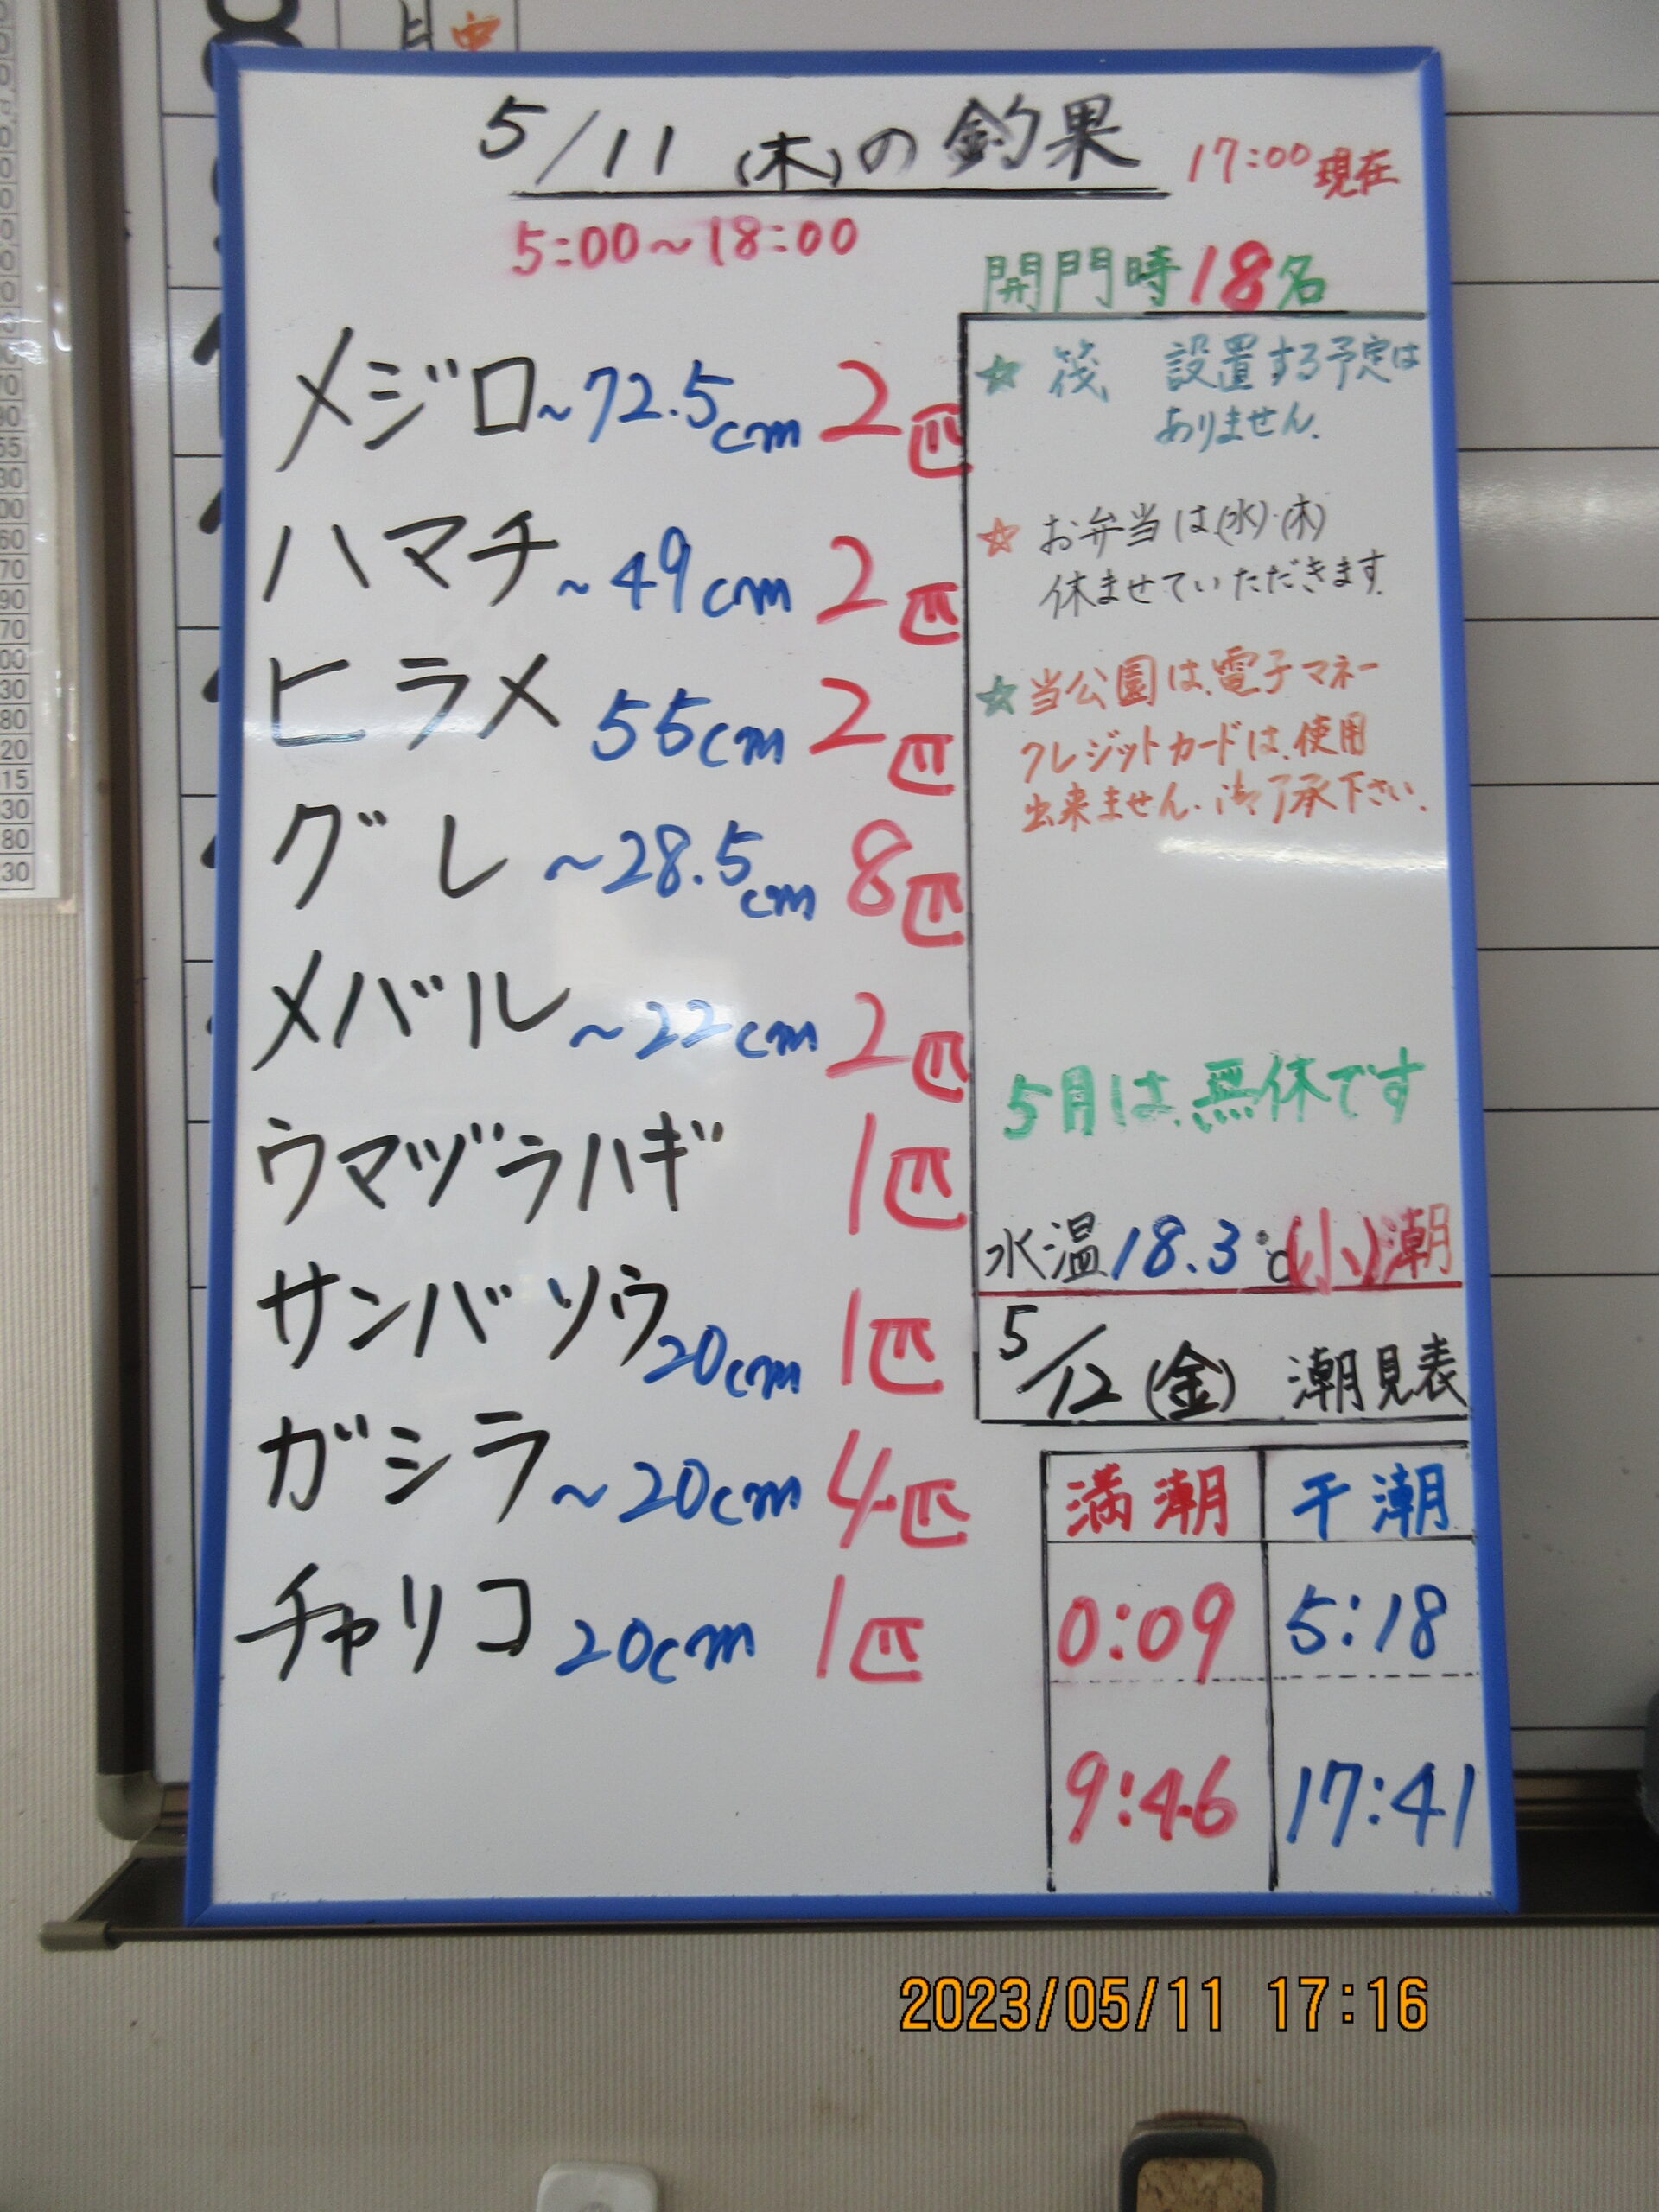 5/11 (木)の釣果 17:00現在
5:00~18:00
開門時18名
メジロ~72.5cm 2匹
ハマチ~49cm 2匹
ヒラメ 55cm 2匹
グレ~28.5cm 8匹
メバル~22cm 2匹
ウマヅラハギ 1匹
サンバソウ20cm 1匹
ガシラ~20cm 4匹
チャリコ20cm 1匹
☆ 筏 設置する予定は
ありません.
☆ お弁当は(水)・(木)
休ませていただきます.
☆当公園は、電子マネー
クレジットカードは、使用
出来ません.御了承下さい.
5月は、無休です
水温18.3℃(小)潮
5/12(金) 潮見表
満潮 干潮
0:09 5:18
9:46 17:41
2023/05/11 17:16